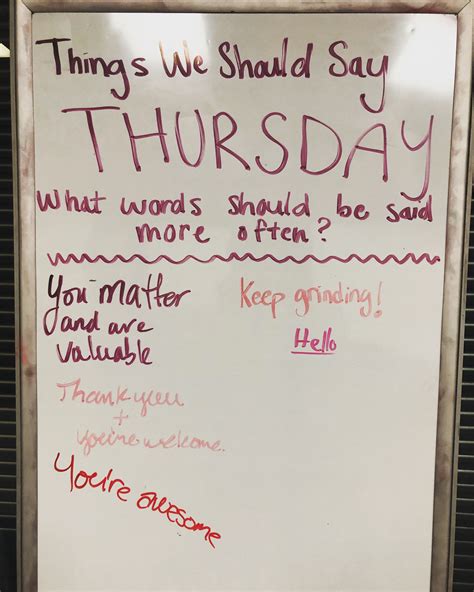 Things We Should Say
THURSDAY
What words should be said
more often?
You matter
and are
valuable
Thank youu
+
you're welcome.
You're awesome
Keep grinding!
Hello